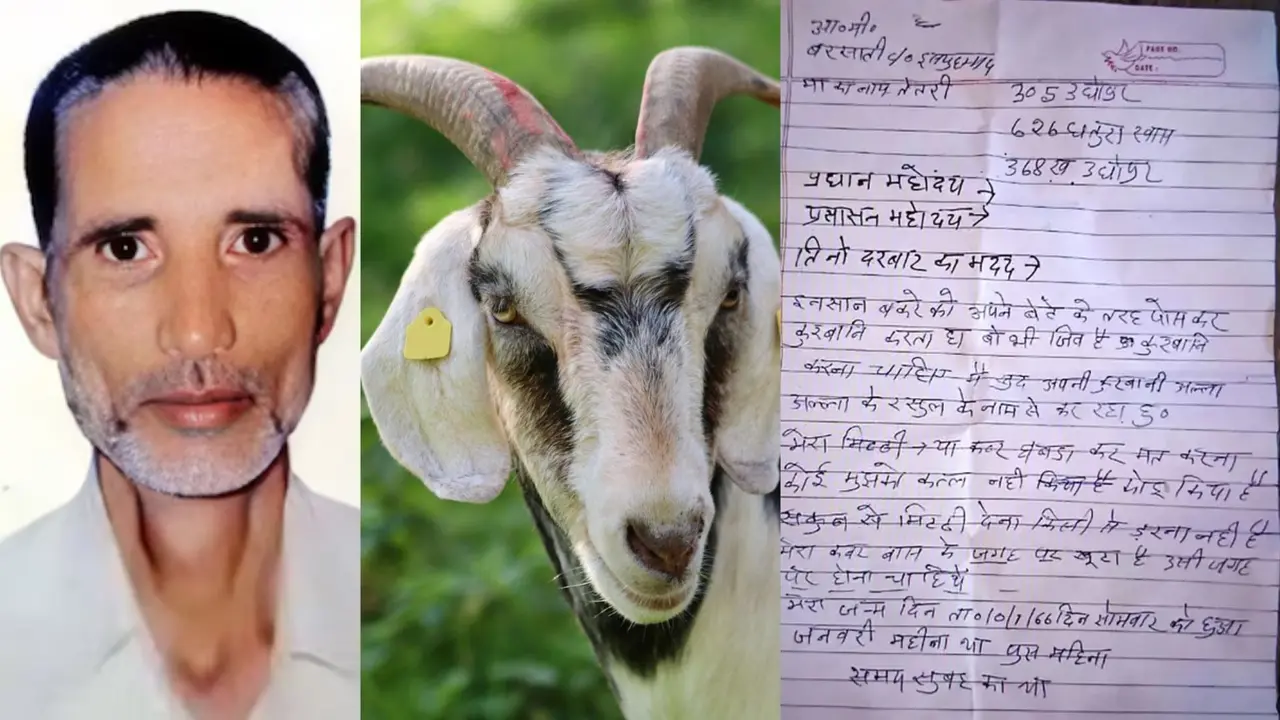 आ०मी०
बरसाती c/o
मा का नाम तेतरी
PAGE NO.
DATE:
305 उधोपुर
626 धतुरा खाम
368 ख. उधोपुर
प्रधान महोदय →
प्रसासन महोदय →
तिनो दरबार का मदद →
इनसान बकरे को अपने बेटे के तरह पोस कर
कुरबानि करता है। वो भी जिव है कुरबानि
करना चाहिए मै खुद अपनी कुरबानी अल्ला
अल्ला के रसुल के नाम से कर रहा हु०
मेरा मिट्टी → या कबर घबड़ा कर मत करना
कोई मुझको कत्ल नही किया है
सकुन से मिट्टी देना किसी से डरना नही है
मेरा कबर बास के जगह पर खूटा है उसी जगह
पर होना चाहिये
मेरा जन्म दिन ता० 10/1/66 दिन सोमवार को हुआ
जनवरी महीना था पुस महिना
समय सुबह का था